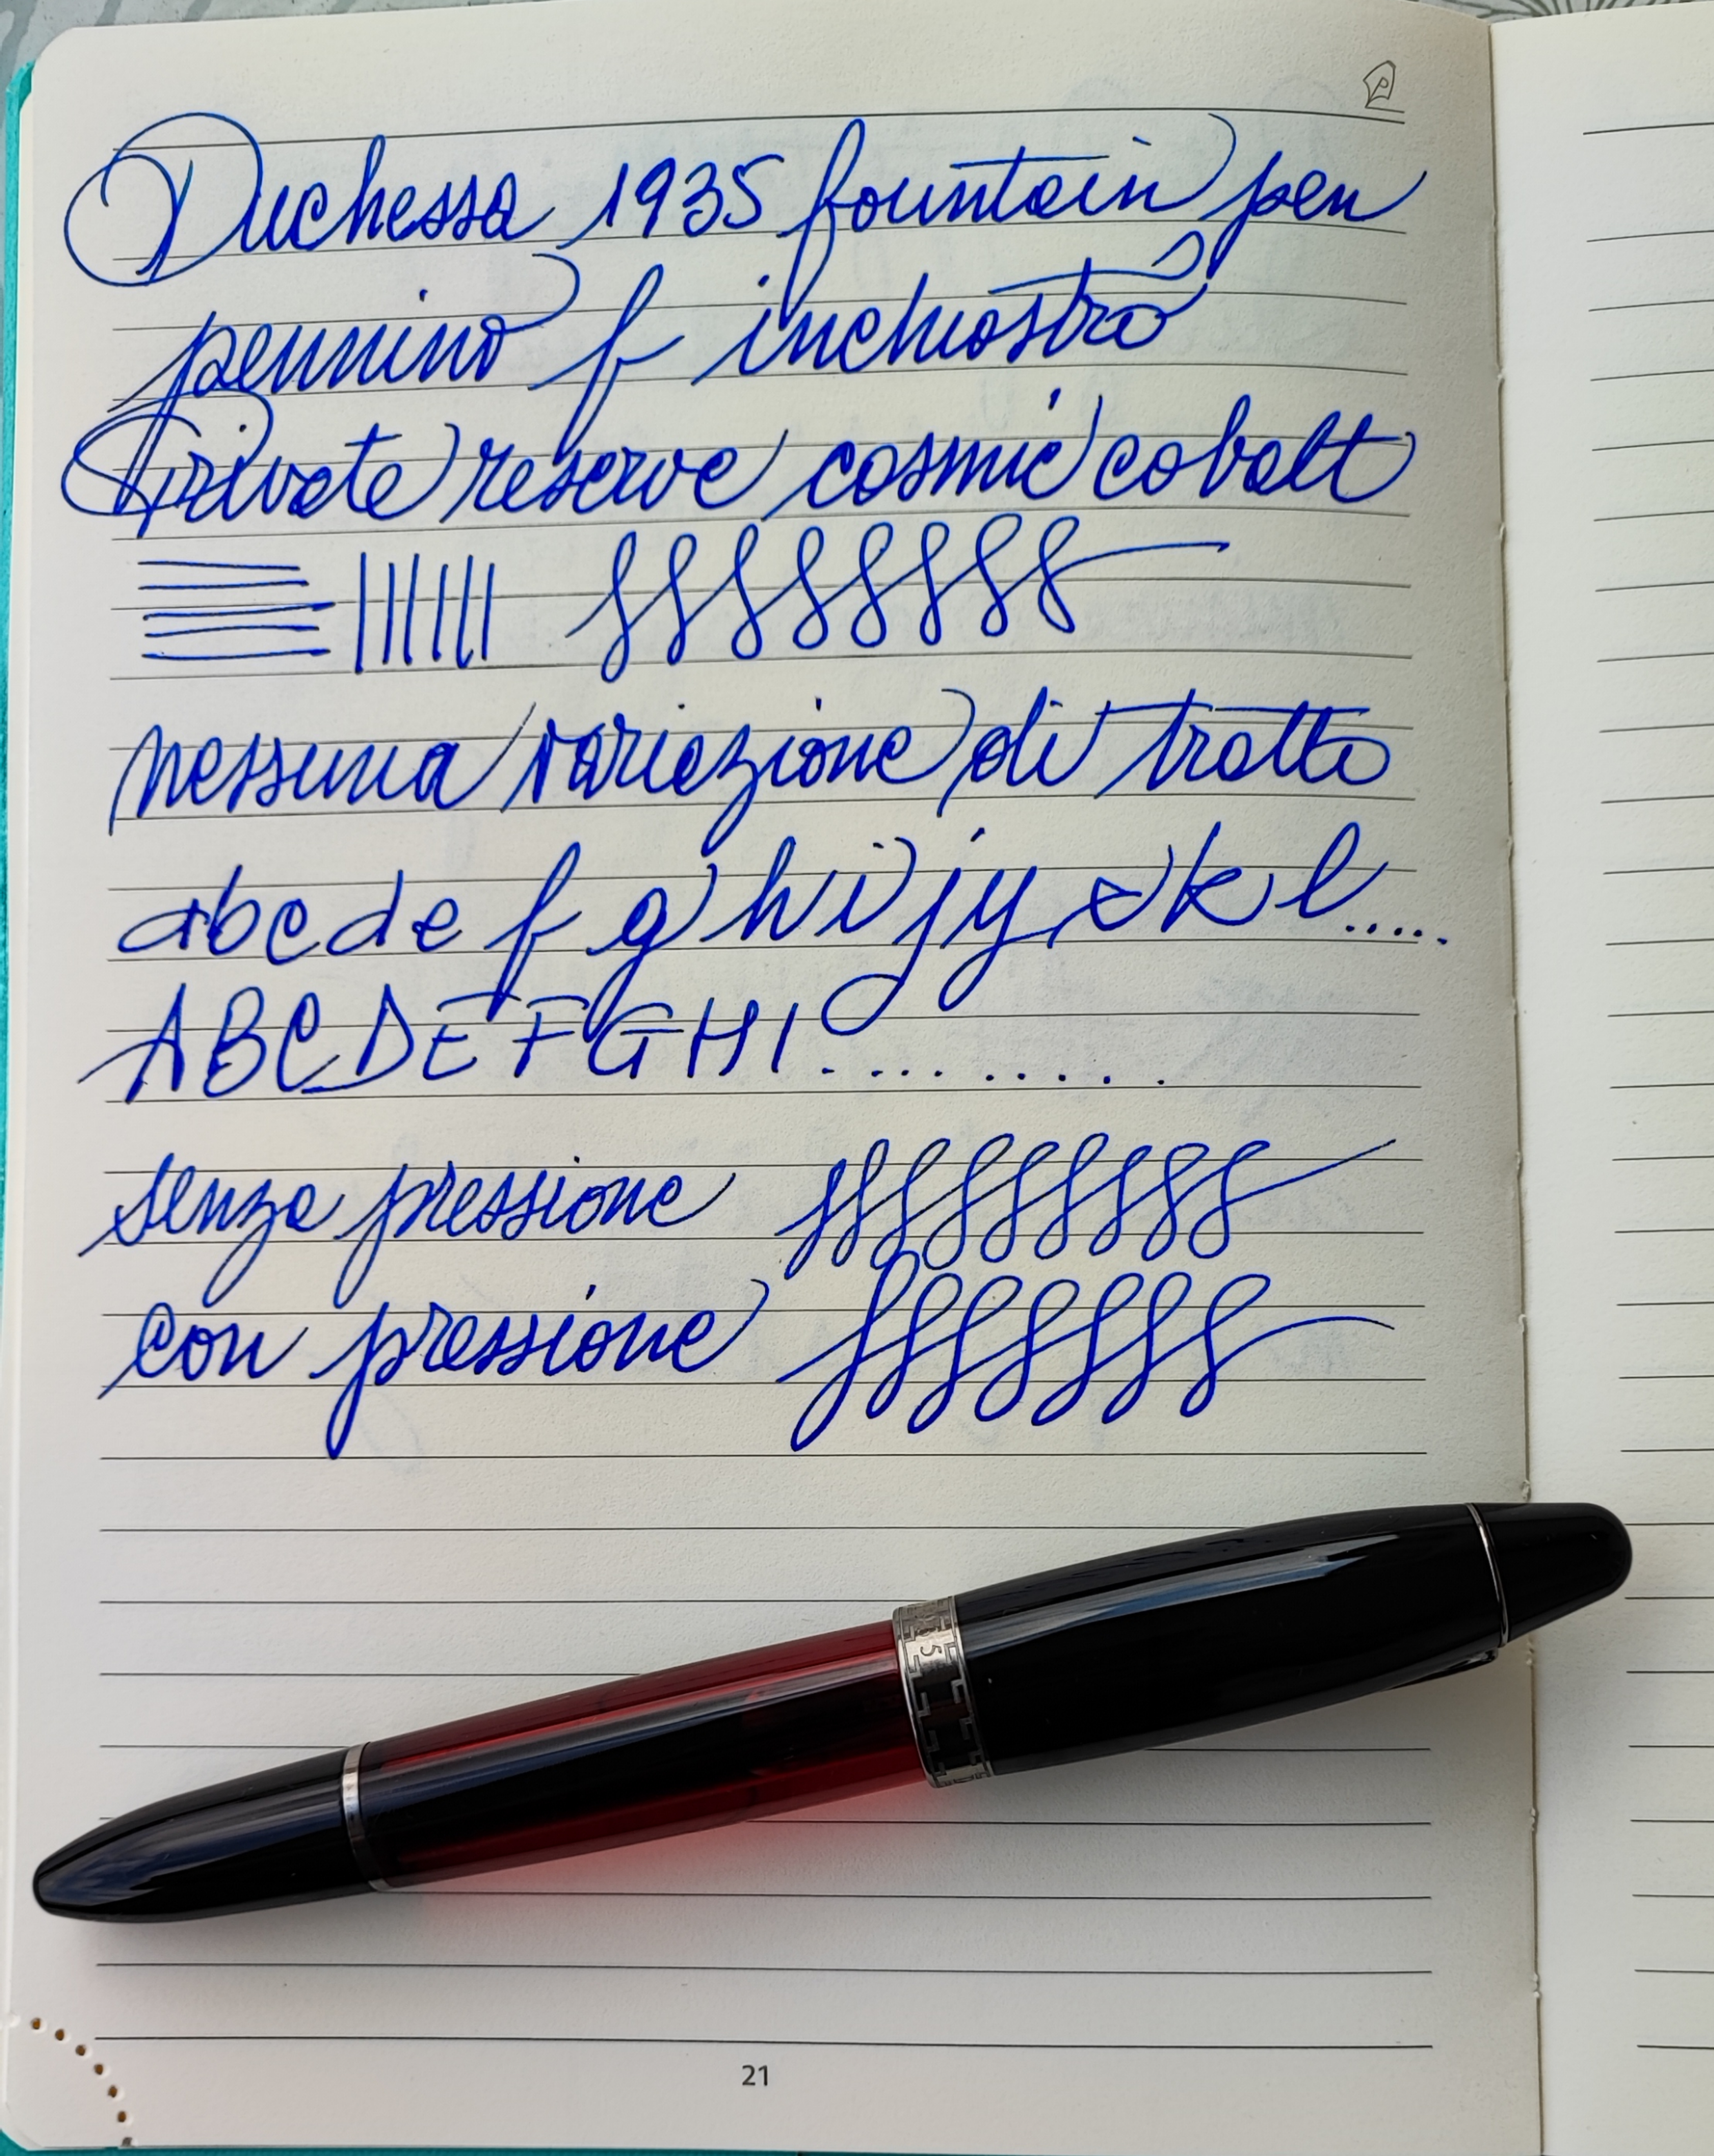 Duchessa 1935 fountain pen
pennino f inchiostro
Private reserve cosmic cobalt
nessuna variazione di tratto
abcde f g h i j y x k l.....
ABCDEFGHI..........
senza pressione
con pressione
21